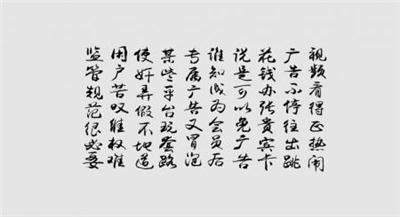 视频看得正热闹
广告不停往出跳
花钱办张贵宾卡
说是可以免广告
谁知成为会员后
专属广告又冒泡
某些平台玩套路
使奸弄假不地道
用户苦叹维权难
监管规范很必要